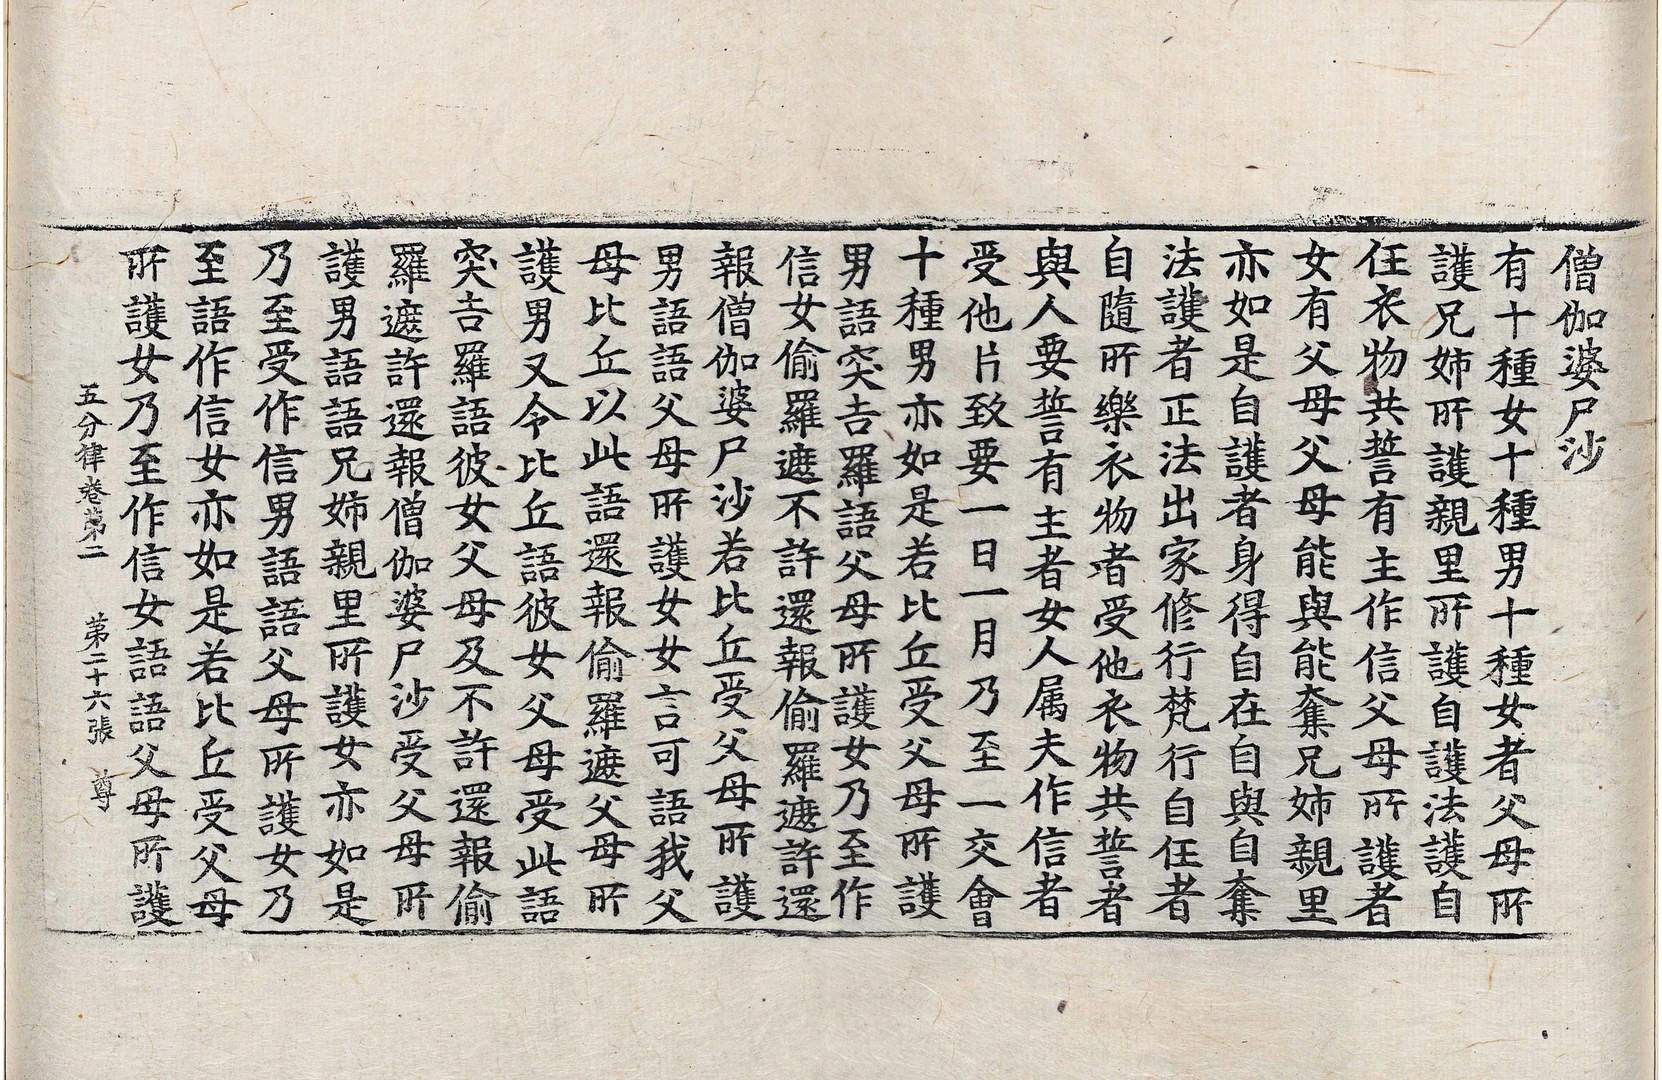 僧伽婆尸沙
有十種女十種男十種女者父母所
護兄姉所護親里所護自護法護自
任衣物共誓有主作信父母所護者
女有父母父母能與能奪兄姉親里
亦如是自護者身得自在自與自奪
法護者正法出家修行梵行自任者
自隨所樂衣物者受他衣物共誓者
與人要誓有主者女人属夫作信者
受他片致要一日一月乃至一交會
十種男亦如是若比丘受父母所護
男語突吉羅語父母所護女乃至作
信女偷羅遮不許還報偷羅遮許還
報僧伽婆尸沙若比丘受父母所護
男語語父母所護女女言可語我父
母比丘以此語還報偷羅遮父母所
護男又令比丘語彼女父母受此語
突吉羅語彼女父母及不許還報偷
羅遮許還報僧伽婆尸沙受父母所
護男語語兄姉親里所護女亦如是
乃至受作信男語語父母所護女乃
至語作信女亦如是若比丘受父母
所護女乃至作信女語語父母所護
五分律卷第二 第二十六張 尊